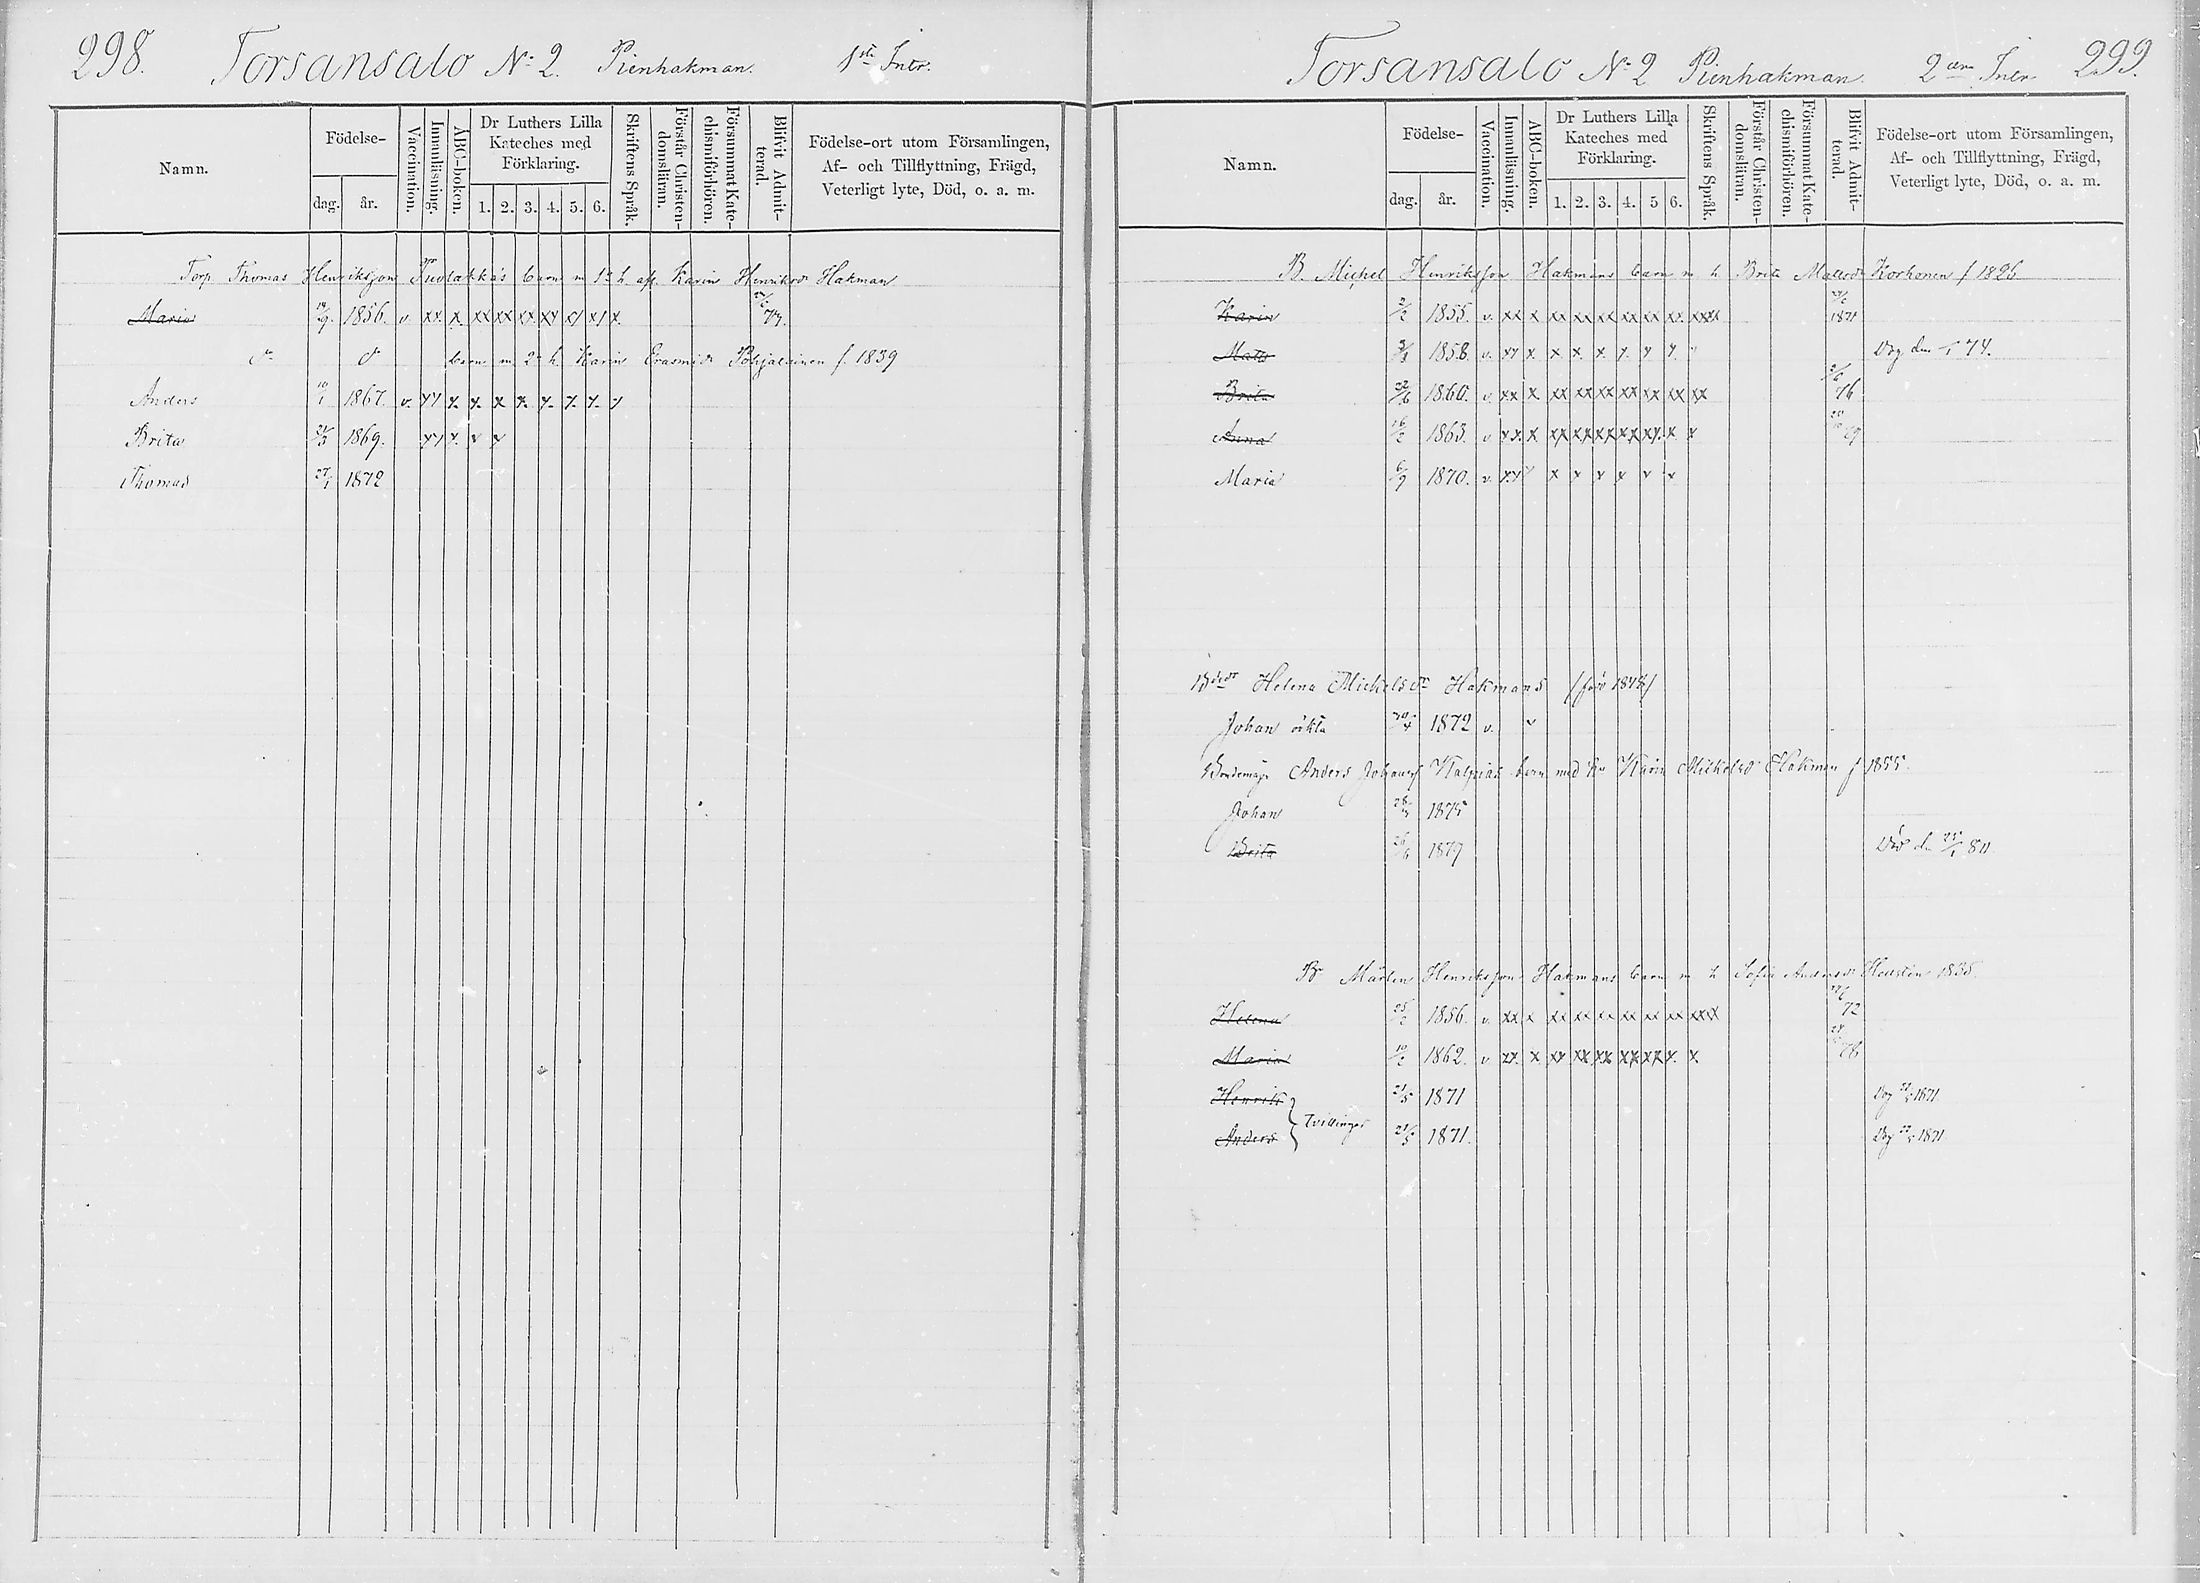 298. Torsansalo No 2. Pienhakman. 1sta Intr.
Namn. Födelse- dag. år. Vaccination. Innanläsning. ABC-boken. Dr Luthers Lilla Kateches med Förklaring. 1. 2. 3. 4. 5. 6. Skriftens Språk. Förstår Christendomsläran. Försummat Katechismiförhören. Blifvit Admitterad. Födelse-ort utom Församlingen, Af- och Tillflyttning, Frägd, Veterligt lyte, Död, o. a. m.
Torp. Thomas Henriksson barn m 1a h afl. Karin Henriksdr Hakman
Maria 1856. v. xx. x. xx xx xx xx x x
do do barn m. 2a h. Karin Erasmidr Pohjalainen f. 1839
Anders 10/1 1867. v. xx x. x. x x. x. x. x. x
Brita 1869. xx x. x x
Thomas 27/1 1872
Torsansalo No 2 Pienhakman. 2dra Intr. 299.
Namn. Födelse- dag. år. Vaccination. Innanläsning. ABC-boken. Dr Luthers Lilla Kateches med Förklaring. 1. 2. 3. 4. 5 6. Skriftens Språk. Förstår Christendomsläran. Försummat Katechismiförhören. Blifvit Admitterad. Födelse-ort utom Församlingen, Af- och Tillflyttning, Frägd, Veterligt lyte, Död, o. a. m.
B. Michel Henriksson Hakmans barn m h Brita Matsdr Korhonen f 1826
Karin 2/2 1855. v. xx x xx xx xx xx xx xx. xxx 1871
Matts 1858. v. xx x x x. x x. x x. Dog den 74.
Brita 22/6 1860. v. xx x xx xx xx xx xx xx xx 76
Anna 16/2 1863. v xx. x xx xx xx xx xx. x x
Maria 6/9 1870. v. xx x x x x x x
Helena Michelsdr Hakmans
Johan oäkta 1872 v. v
Anders barn med hu Karin Mickelsdr Hakman f 1855.
Johan 1875
Brita 1879 Död d 80
B Mårten Henriksson Hakmans barn m h Sofia Andersdr 1835.
Helena 1856. v. xx x xx xx xx xx xx xx xxx 72
Maria 1862. v xx. x xx xx xx xx xx x. x. 78
Henrik 21/5 1871 Dog 1871.
Tvillingar
Anders 21/5 1871. Dog 1871.